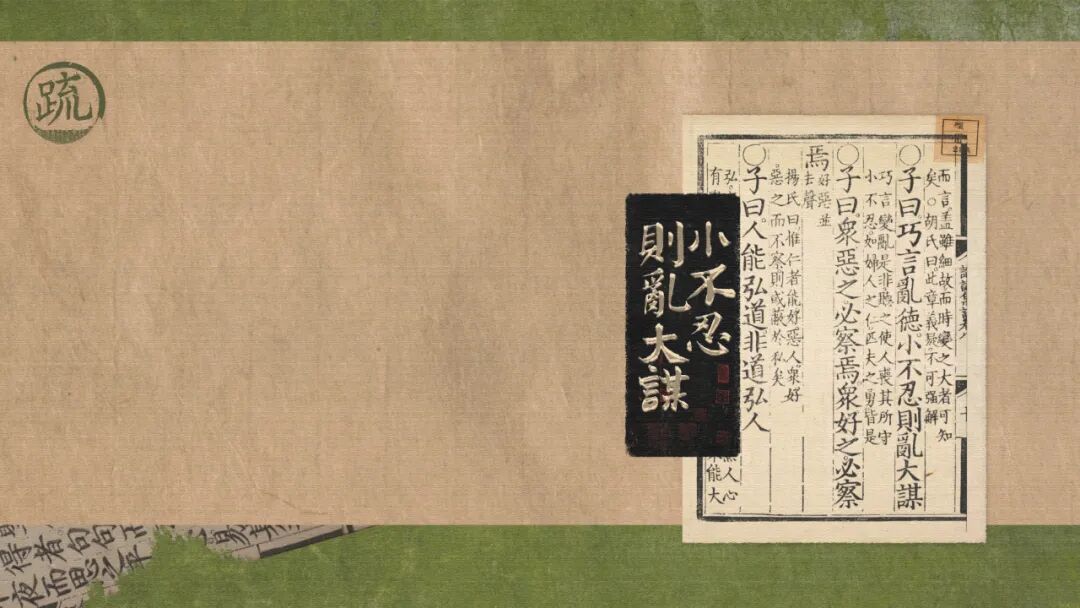 疏
小不忍
則亂大謀
而言蓋雖細故而時變之大者可知
矣○胡氏曰此章義疑不可强解
○子曰巧言亂德小不忍則亂大謀
巧言變亂是非聽之使人喪其所守
小不忍如婦人之仁匹夫之勇皆是
○子曰衆惡之必察焉衆好之必察
焉
好惡並
去聲
楊氏曰惟仁者能好惡人衆好
惡之而不察則或蔽於私矣
○子曰人能弘道非道弘人
弘
人心
有
能大
得者句句
夜而思之年